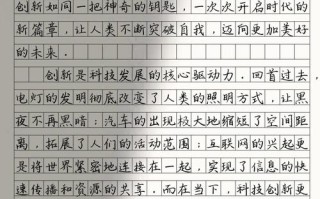 创新如同一把神奇的钥匙，一次次开启时代的
新篇章，让人类不断突破自我，迈向更加美好
的未来。
创新是科技发展的核心驱动力。回首过去，
电灯的发明彻底改变了人类的照明方式，让黑
夜不再黑暗；汽车的出现极大地缩短了空间距
离，拓展了人们的活动范围；互联网的兴起更
是将世界紧密地连接在一起，实现了信息的快
速传播和资源的共享。而在当下，科技创新更